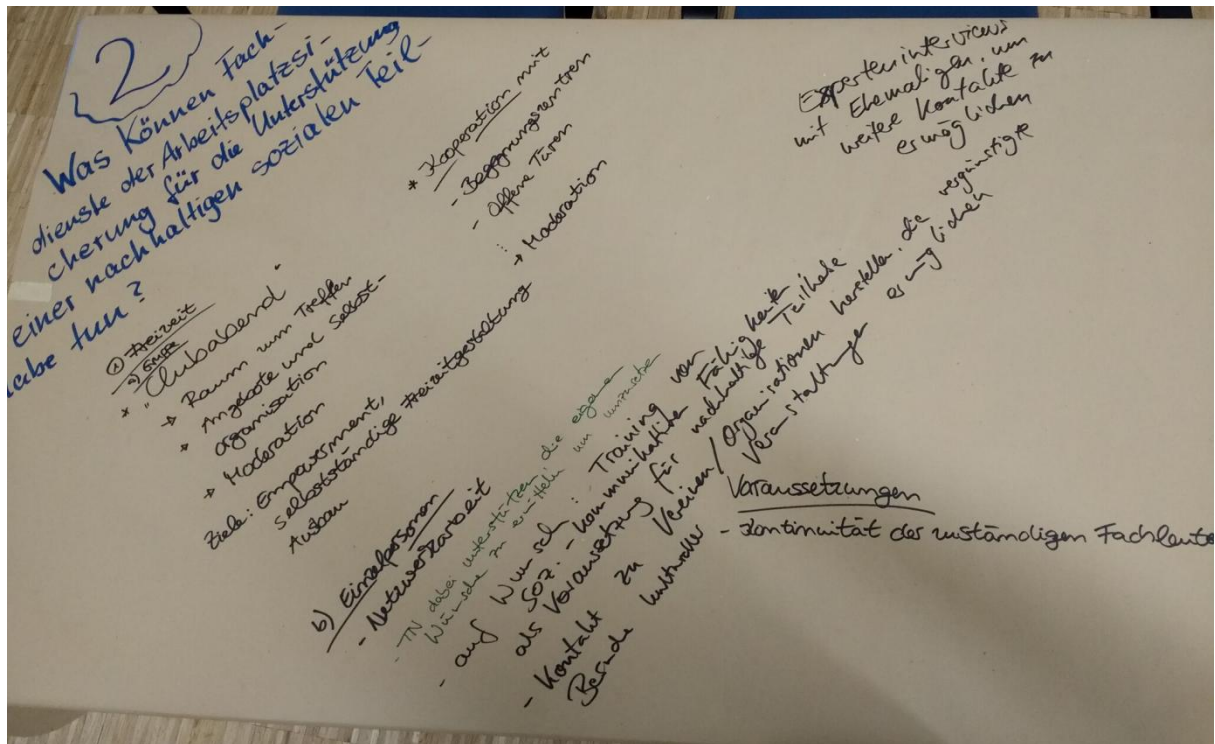 2
Was Können Fach-
dienste der Arbeitsplatzsi-
cherung für die Unterstützung
einer nachhaltigen sozialen Teil-
habe tun?
① Freizeit
a) Gruppe
* "Clubabend"
→ Raum zum Treffen
* Angebote und Selbst-
organisation
→ Moderation
Ziele: Empowerment,
selbstständige Freizeitgestaltung
Ausbau
* Kooperation mit
- Begegnungszentren
- Offene Türen
⋮
→ Moderation
b) Einzelpersonen
- Netzwerkarbeit
- TN dabei unterstützen, die eigenen
Wünsche zu ermitteln um umzusetzen
- auf Wunsch: Training von
soz.-kommunikativen Fähigkeiten
als Voraussetzung für nachhaltige Teilhabe
- Kontakt zu Vereinen / Organisationen herstellen, die vergünstigte
Besuche kultureller Veranstaltungen ermöglichen
Experteninterviews
mit Ehemaligen, um
weitere Kontakte zu
ermöglichen
Voraussetzungen
- Kontinuität der zuständigen Fachleute